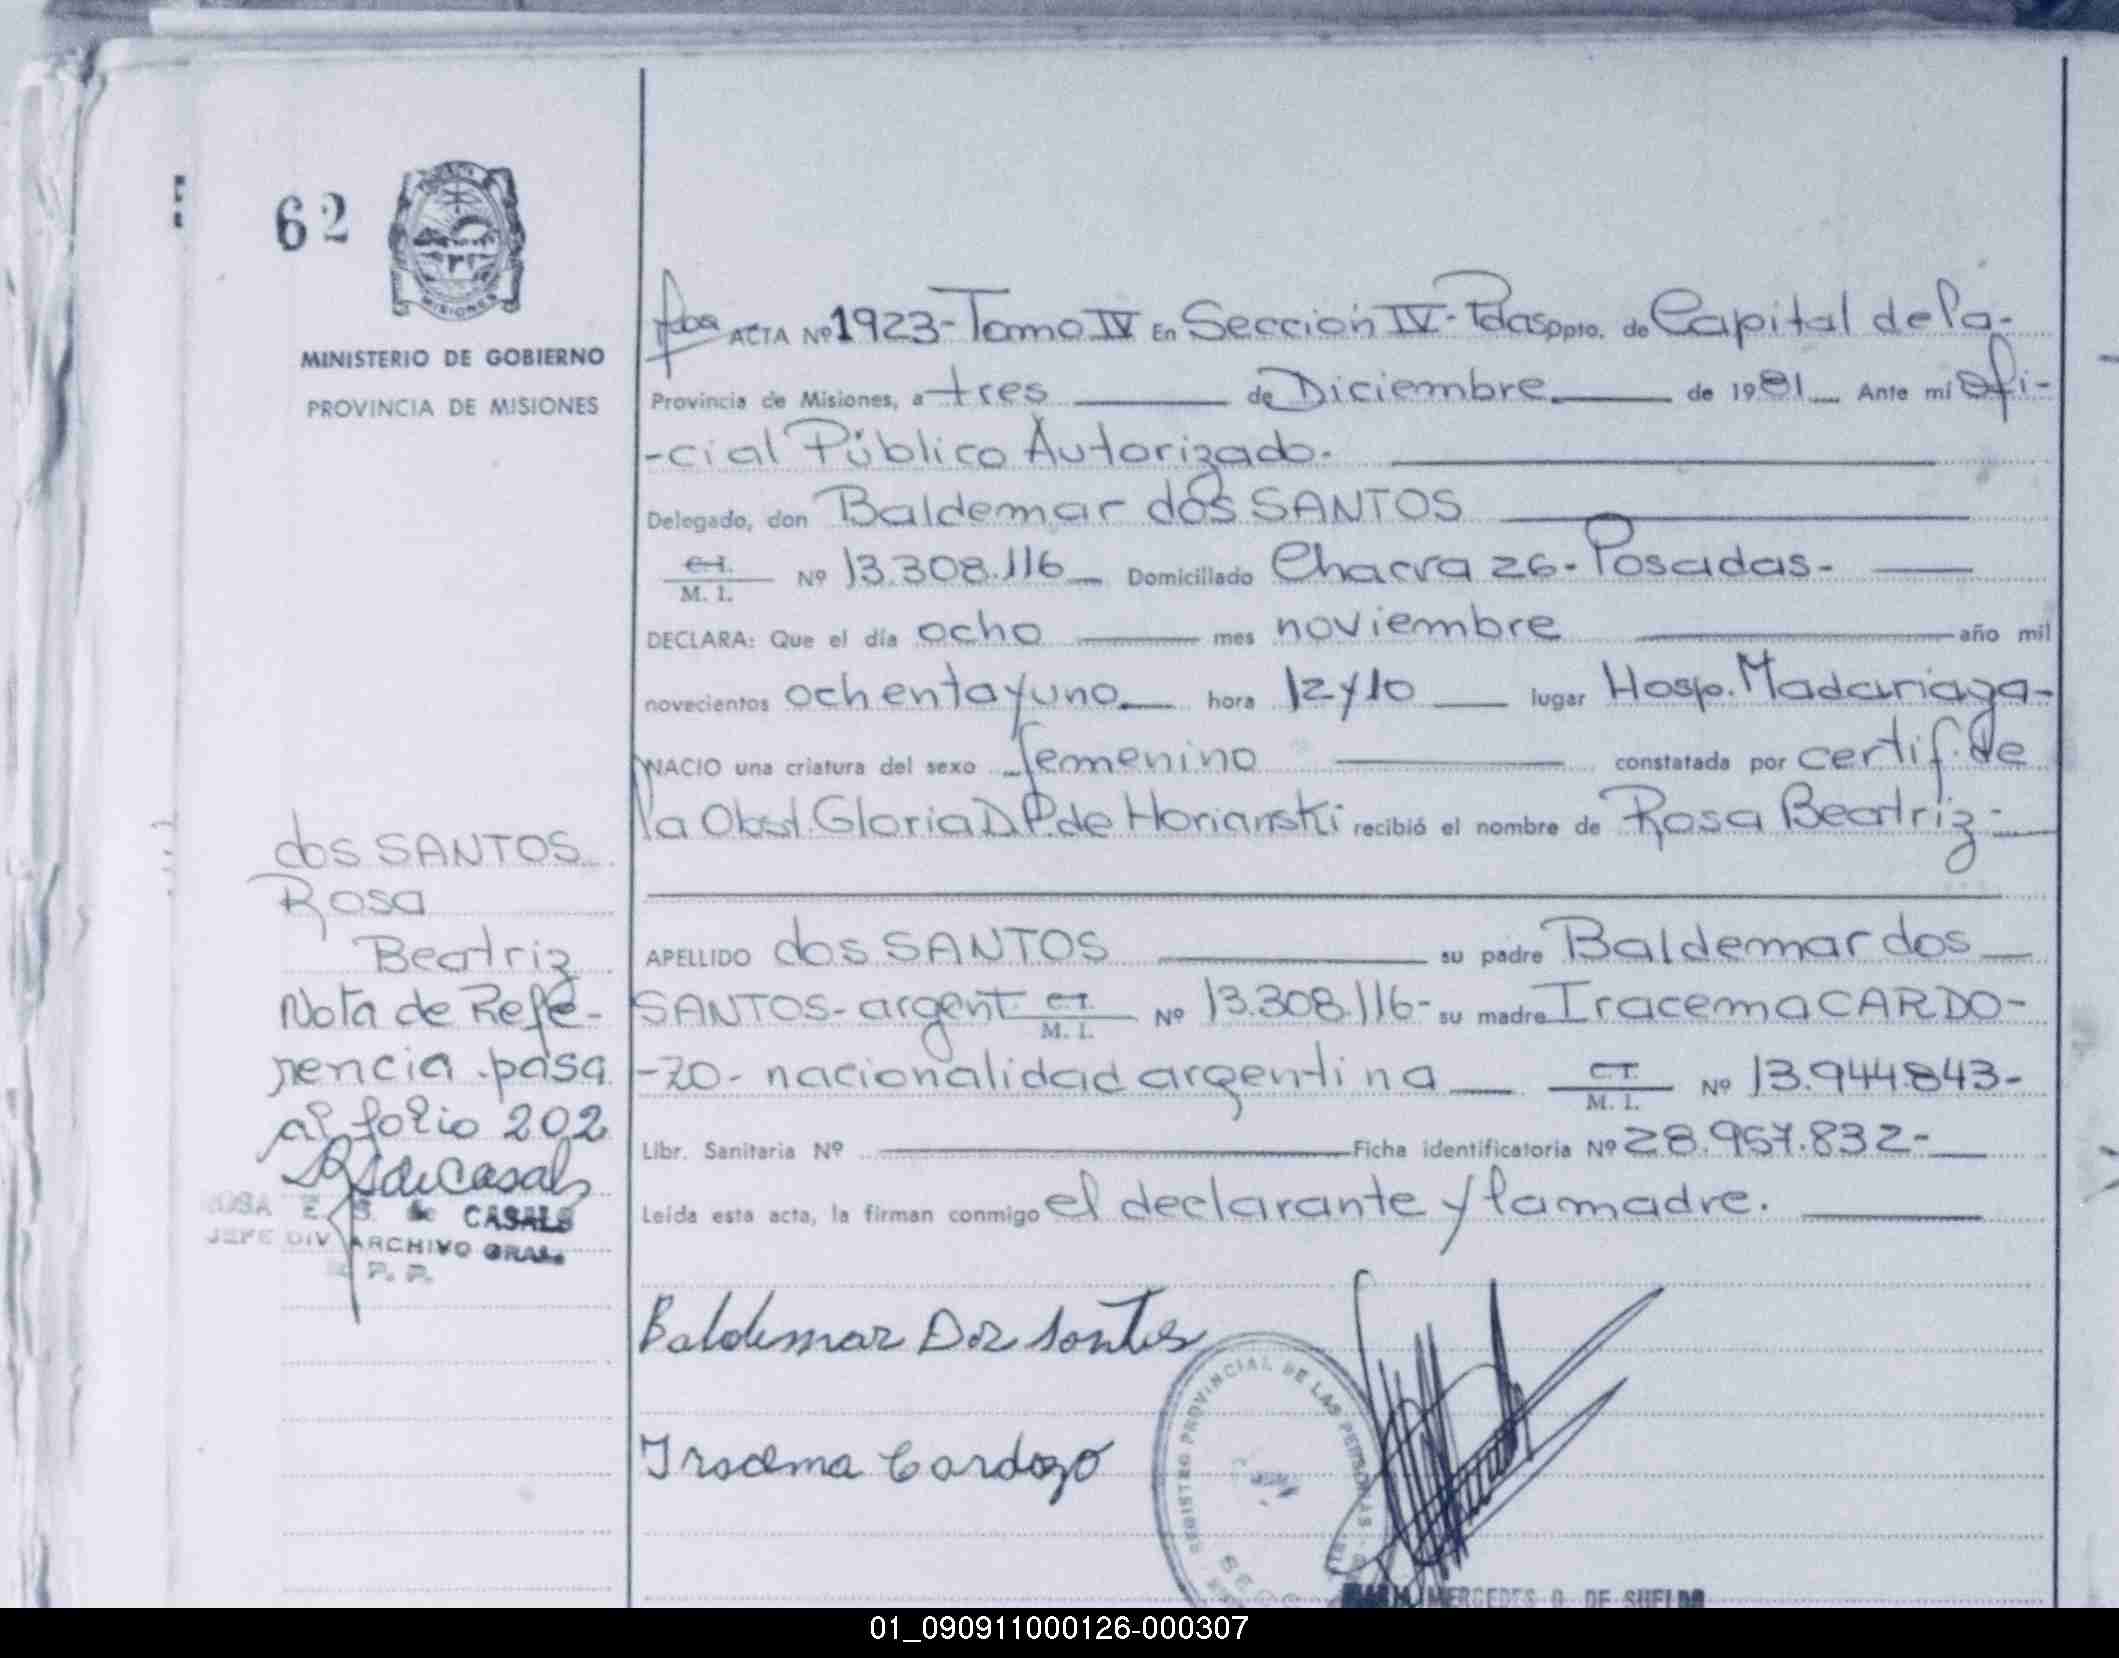 62
MISIONES
MINISTERIO DE GOBIERNO
PROVINCIA DE MISIONES
ACTA Nº 1923-Tomo IV En Sección IV-Pdas Dpto. de Capital de la-
Provincia de Misiones, a tres de Diciembre de 1981 Ante mi Ofi-
-cial Público Autorizado.
Delegado, don Baldemar dos SANTOS
C.I.
M. I. Nº 13.308.116 Domiciliado Chacra 26-Posadas-
DECLARA: Que el día ocho mes noviembre año mil
novecientos ochentayuno hora 12y10 lugar Hosp. Madariaga-
NACIO una criatura del sexo femenino constatada por certif. de
la Obst. Gloria D.P. de Horianski recibió el nombre de Rosa Beatriz-
APELLIDO dos SANTOS su padre Baldemar dos
SANTOS- argent. C.I.
M. I. Nº 13.308.116- su madre Iracema CARDO-
-ZO- nacionalidad argentina C.I.
M. I. Nº 13.944.843-
Libr. Sanitaria Nº Ficha identificatoria Nº 28.957.832-
Leída esta acta, la firman conmigo el declarante y la madre.
Baldemar Dos santos
Iracema Cardozo
REGISTRO PROVINCIAL DE LAS PERSONAS
MERCEDES O. DE SUELDO
dos SANTOS
Rosa
Beatriz
Nota de Refe-
rencia pasa
al folio 202
ROSA E. S. de CASALS
JEFE DIV ARCHIVO GRAL.
R. P. P.
01_090911000126-000307